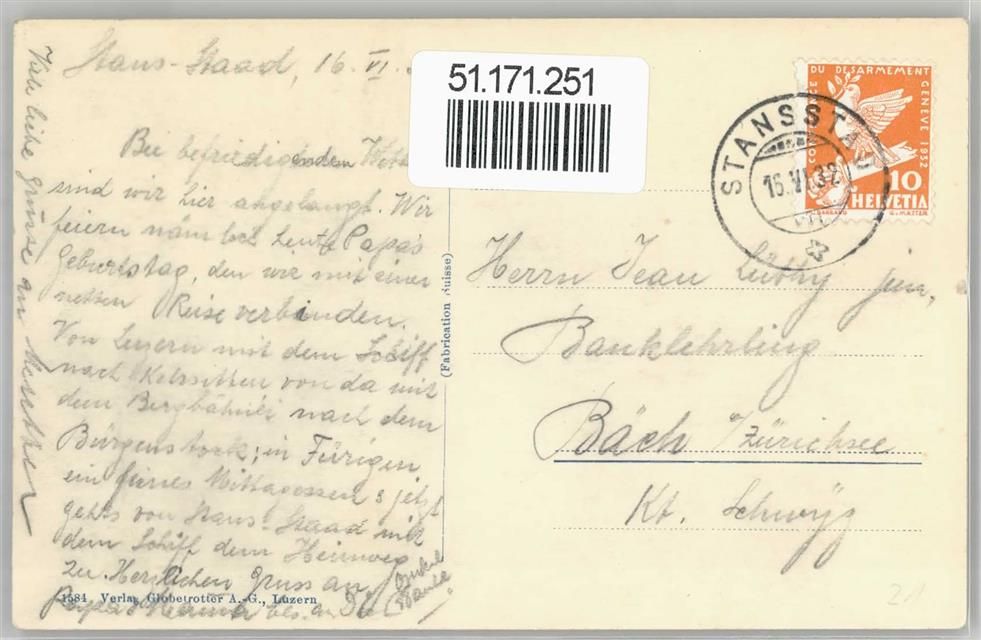 Stans-Staad, 16. VI.
Bei befriedigendem
sind wir hier angelangt. Wir
feiern nämlich heute Papa's
Geburtstag, den wir mit einer
netten Reise verbinden.
Von Luzern mit dem Schiff
nach Kehrsitten von da mit
dem Bergbähnli nach dem
Bürgenstock; in Fürigen
ein feines Mittagessen & jetzt
gehts von Stans-Staad mit
dem Schiff dem Heimweg
zu. Herzlichen Gruss an
Papa & Mama bes. an Dich
Onkel
Viele liebe Grüsse an
51.171.251
CONFERENCE DU DESARMEMENT GENEVE 1932
10
HELVETIA
STANSSTAD
16.VI.32
Herrn Jean Lüthy jun.
Banklehrling
Bäch /Zürichsee
Kt. Schwyz
(Fabrication Suisse)
1584 Verlag Globetrotter A.-G., Luzern
21